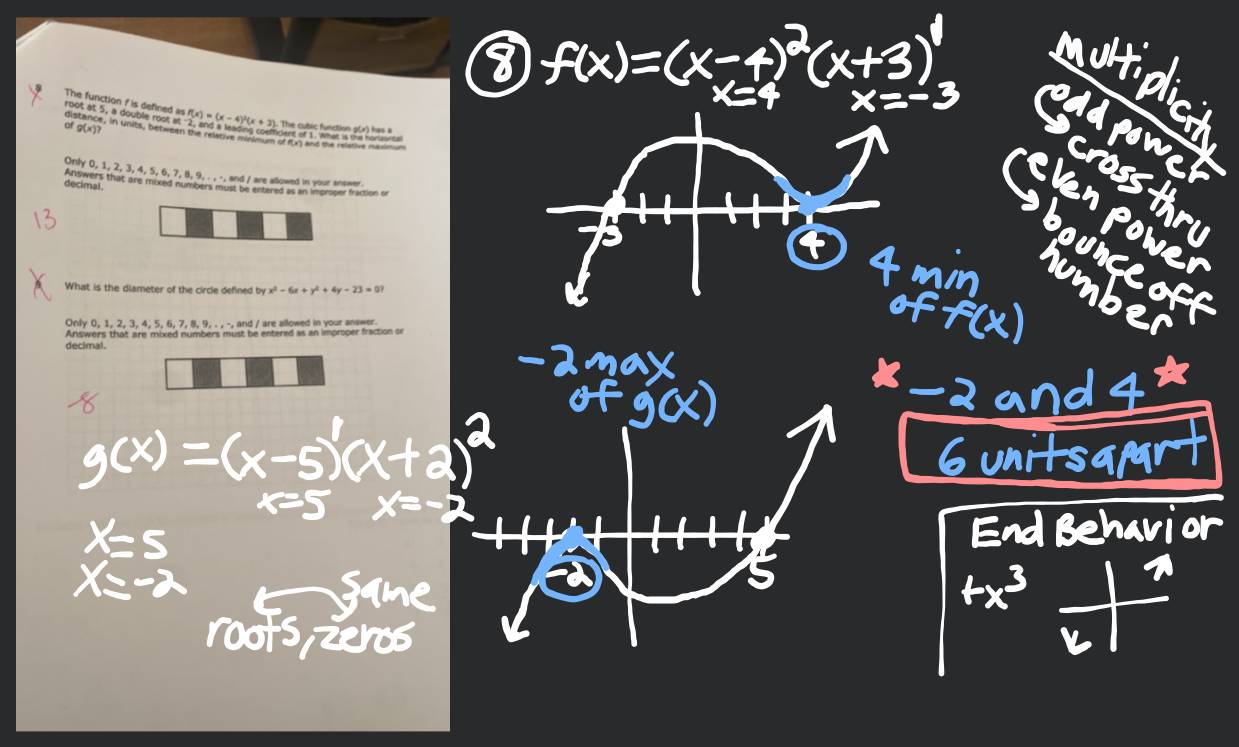 The function f is defined as f(x) = (x − 4)²(x + 3). The cubic function g(x) has a
root at 5, a double root at -2, and a leading coefficient of 1. What is the horizontal
distance, in units, between the relative minimum of f(x) and the relative maximum
of g(x)?
Only 0, 1, 2, 3, 4, 5, 6, 7, 8, 9, . , -, and / are allowed in your answer.
Answers that are mixed numbers must be entered as an improper fraction or
decimal.
13
What is the diameter of the circle defined by x² − 6x + y² + 4y − 23 = 0?
Only 0, 1, 2, 3, 4, 5, 6, 7, 8, 9, . , -, and / are allowed in your answer.
Answers that are mixed numbers must be entered as an improper fraction or
decimal.
-8
g(x) = (x-5)¹(x+2)²
x=5 x=-2
x=5
x=-2
same
roots, zeros
⑧ f(x)=(x-4)²(x+3)¹
x=4 x=-3
-3
4
4 min
of f(x)
-2 max
of g(x)
-2
5
Multiplicity
odd power
cross thru
even power
bounce off
number
-2 and 4
6 units apart
End Behavior
+x³